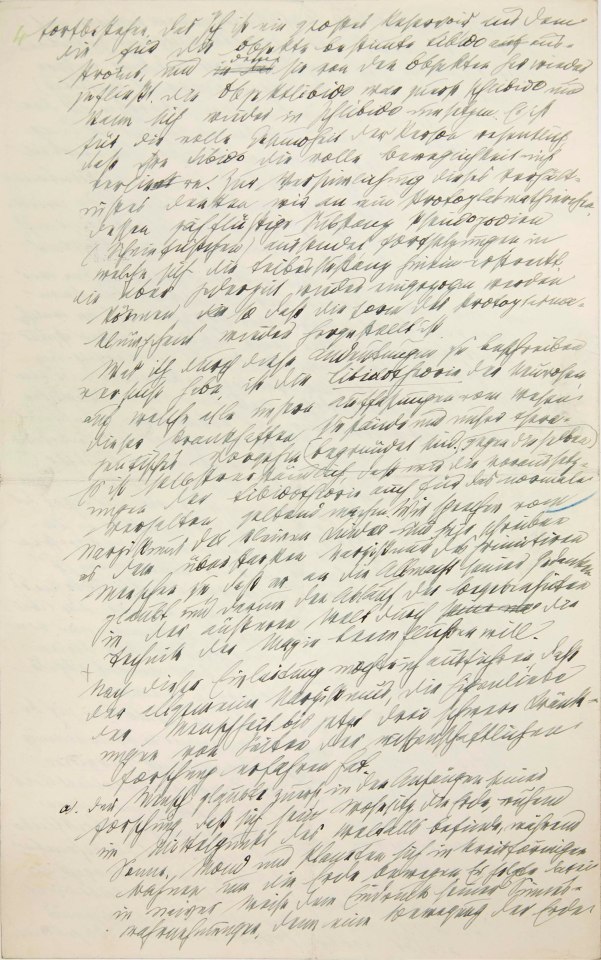 fortbestehe. Das Ich ist ein großes Reservoir aus dem
die für die Objekte bestimmte Libido aus-
strömt, und dem sie von den Objekten her wieder
zufließt. Die Objektlibido war zuerst Ichlibido und
kann sich wieder in Ichlibido umsetzen. Es ist
für die volle Gesundheit der Person wesentlich,
daß ihre Libido die volle Beweglichkeit nicht
verliere. Zur Versinnlichung dieses Verhält-
nisses denken wir an ein Protoplasmathierchen
dessen zähflüssige Substanz Pseudopodien
(Scheinfüßchen) aussendet, Fortsetzungen in
welche sich die Leibessubstanz hinein erstreckt
die aber jederzeit wieder eingezogen werden
können, so daß die Form des Protoplasma-
klümpchens wieder hergestellt ist.
Was ich durch diese Andeutungen zu beschreiben
versucht habe, ist die Libidotheorie der Neurosen
auf welche alle unsere Auffassungen vom Wesen
dieser krankhaften Zustände und unser thera-
peutisches Vorgehen begründet sind. gegen dieselben
Es ist selbstverständlich, daß wir die Voraussetz-
ungen der Libidotheorie auch für das normale
Verhalten geltend machen. Wir sprechen vom
Narzißmus des kleinen Kindes und wir schreiben
es dem überstarken Narzißmus des primitiven
Menschen zu, daß er an die Allmacht seiner Gedanken
glaubt und darum den Ablauf der Begebenheiten
in der äußeren Welt durch die
Technik der Magie beeinflußen will.
Nach dieser Einleitung möchte ich ausführen, daß
der allgemeine Narzißmus, die Eigenliebe
der Menschheit bis jetzt drei schwere Kränk-
ungen von Seiten der wissenschaftlichen
Forschung erfahren hat.
a. Der Mensch glaubte zuerst in den Anfängen seiner
Forschung, daß sich sein Wohnsitz, die Erde, ruhend
im Mittelpunkt des Weltalls befinde, während
Sonne, Mond und Planeten sich in kreisförmigen
Bahnen um die Erde bewegen. Er folgte dabei
in naiver Weise dem Eindruck seiner Sinnes-
wahrnehmungen, denn eine Bewegung der Erde